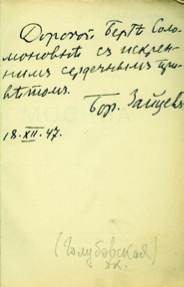 Дорогой Бертѣ Соло-
моновнѣ съ искрен-
нимъ сердечнымъ при-
вѣтомъ.
Бор. Зайцевъ
18.XII.47.
(Голубовская)